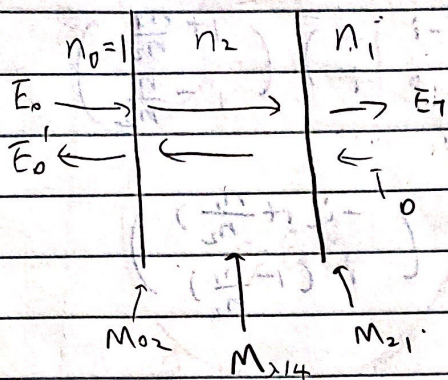 n₀=1 n₂ n₁
E₀ E_T
E₀' 0
M₀₂ M_λ/4 M₂₁